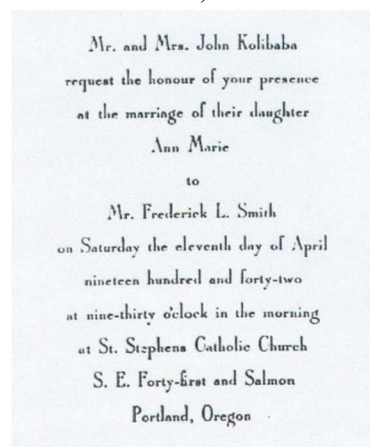 Mr. and Mrs. John Kolibaba
request the honour of your presence
at the marriage of their daughter
Ann Marie
to
Mr. Frederick L. Smith
on Saturday the eleventh day of April
nineteen hundred and forty-two
at nine-thirty o'clock in the morning
at St. Stephens Catholic Church
S. E. Forty-first and Salmon
Portland, Oregon